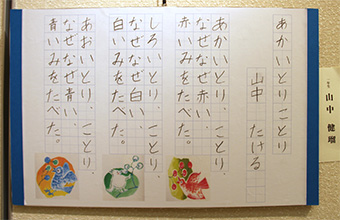 あかいとり ことり
山中 たける
あかいとり、ことり、
なぜなぜ赤い、
赤いみをたべた。
しろいとり、ことり、
なぜなぜ白い
白いみをたべた。
あおいとり、ことり、
なぜなぜ青い
青いみをたべた。
山中 健